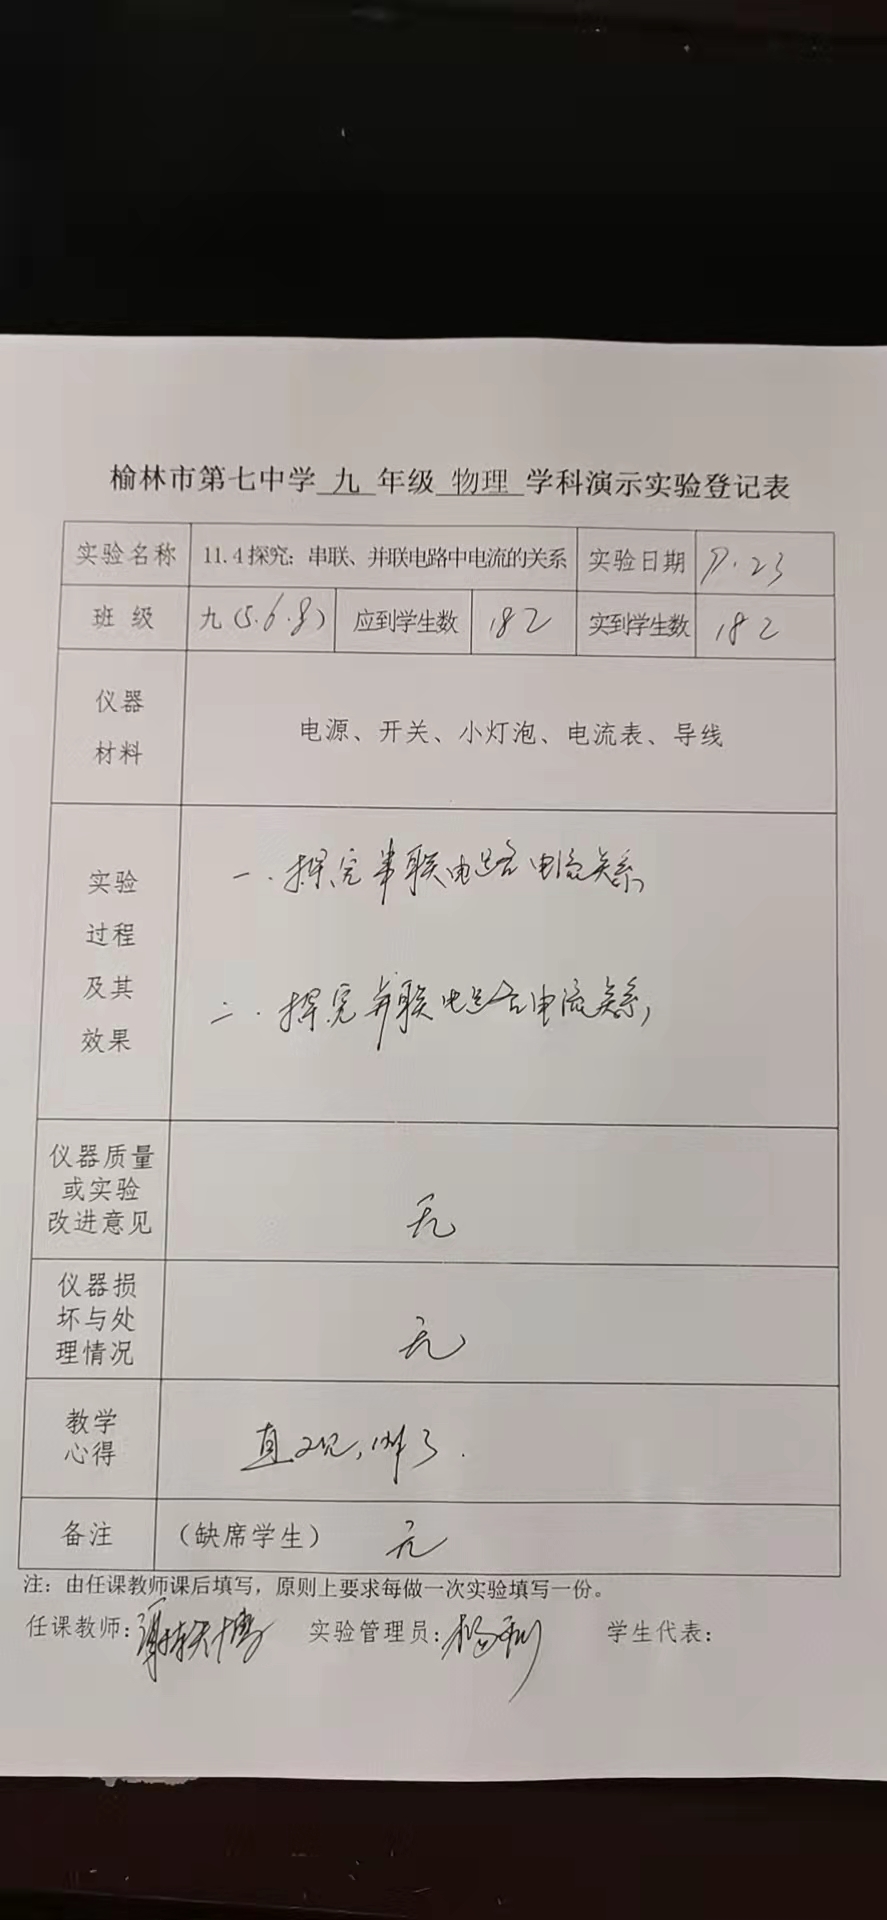 榆林市第七中学 九 年级 物理 学科演示实验登记表
实验名称 11.4探究：串联、并联电路中电流的关系 实验日期 9.23
班 级 九(5.6.8) 应到学生数 182 实到学生数 182
仪器
材料
电源、开关、小灯泡、电流表、导线
实验
过程
及其
效果
一.探究串联电路电流关系,
二.探究并联电路电流关系,
仪器质量
或实验
改进意见
无
仪器损
坏与处
理情况
无
教学
心得
直观,明了.
备注 （缺席学生） 无
注：由任课教师课后填写，原则上要求每做一次实验填写一份。
任课教师： 实验管理员： 学生代表：